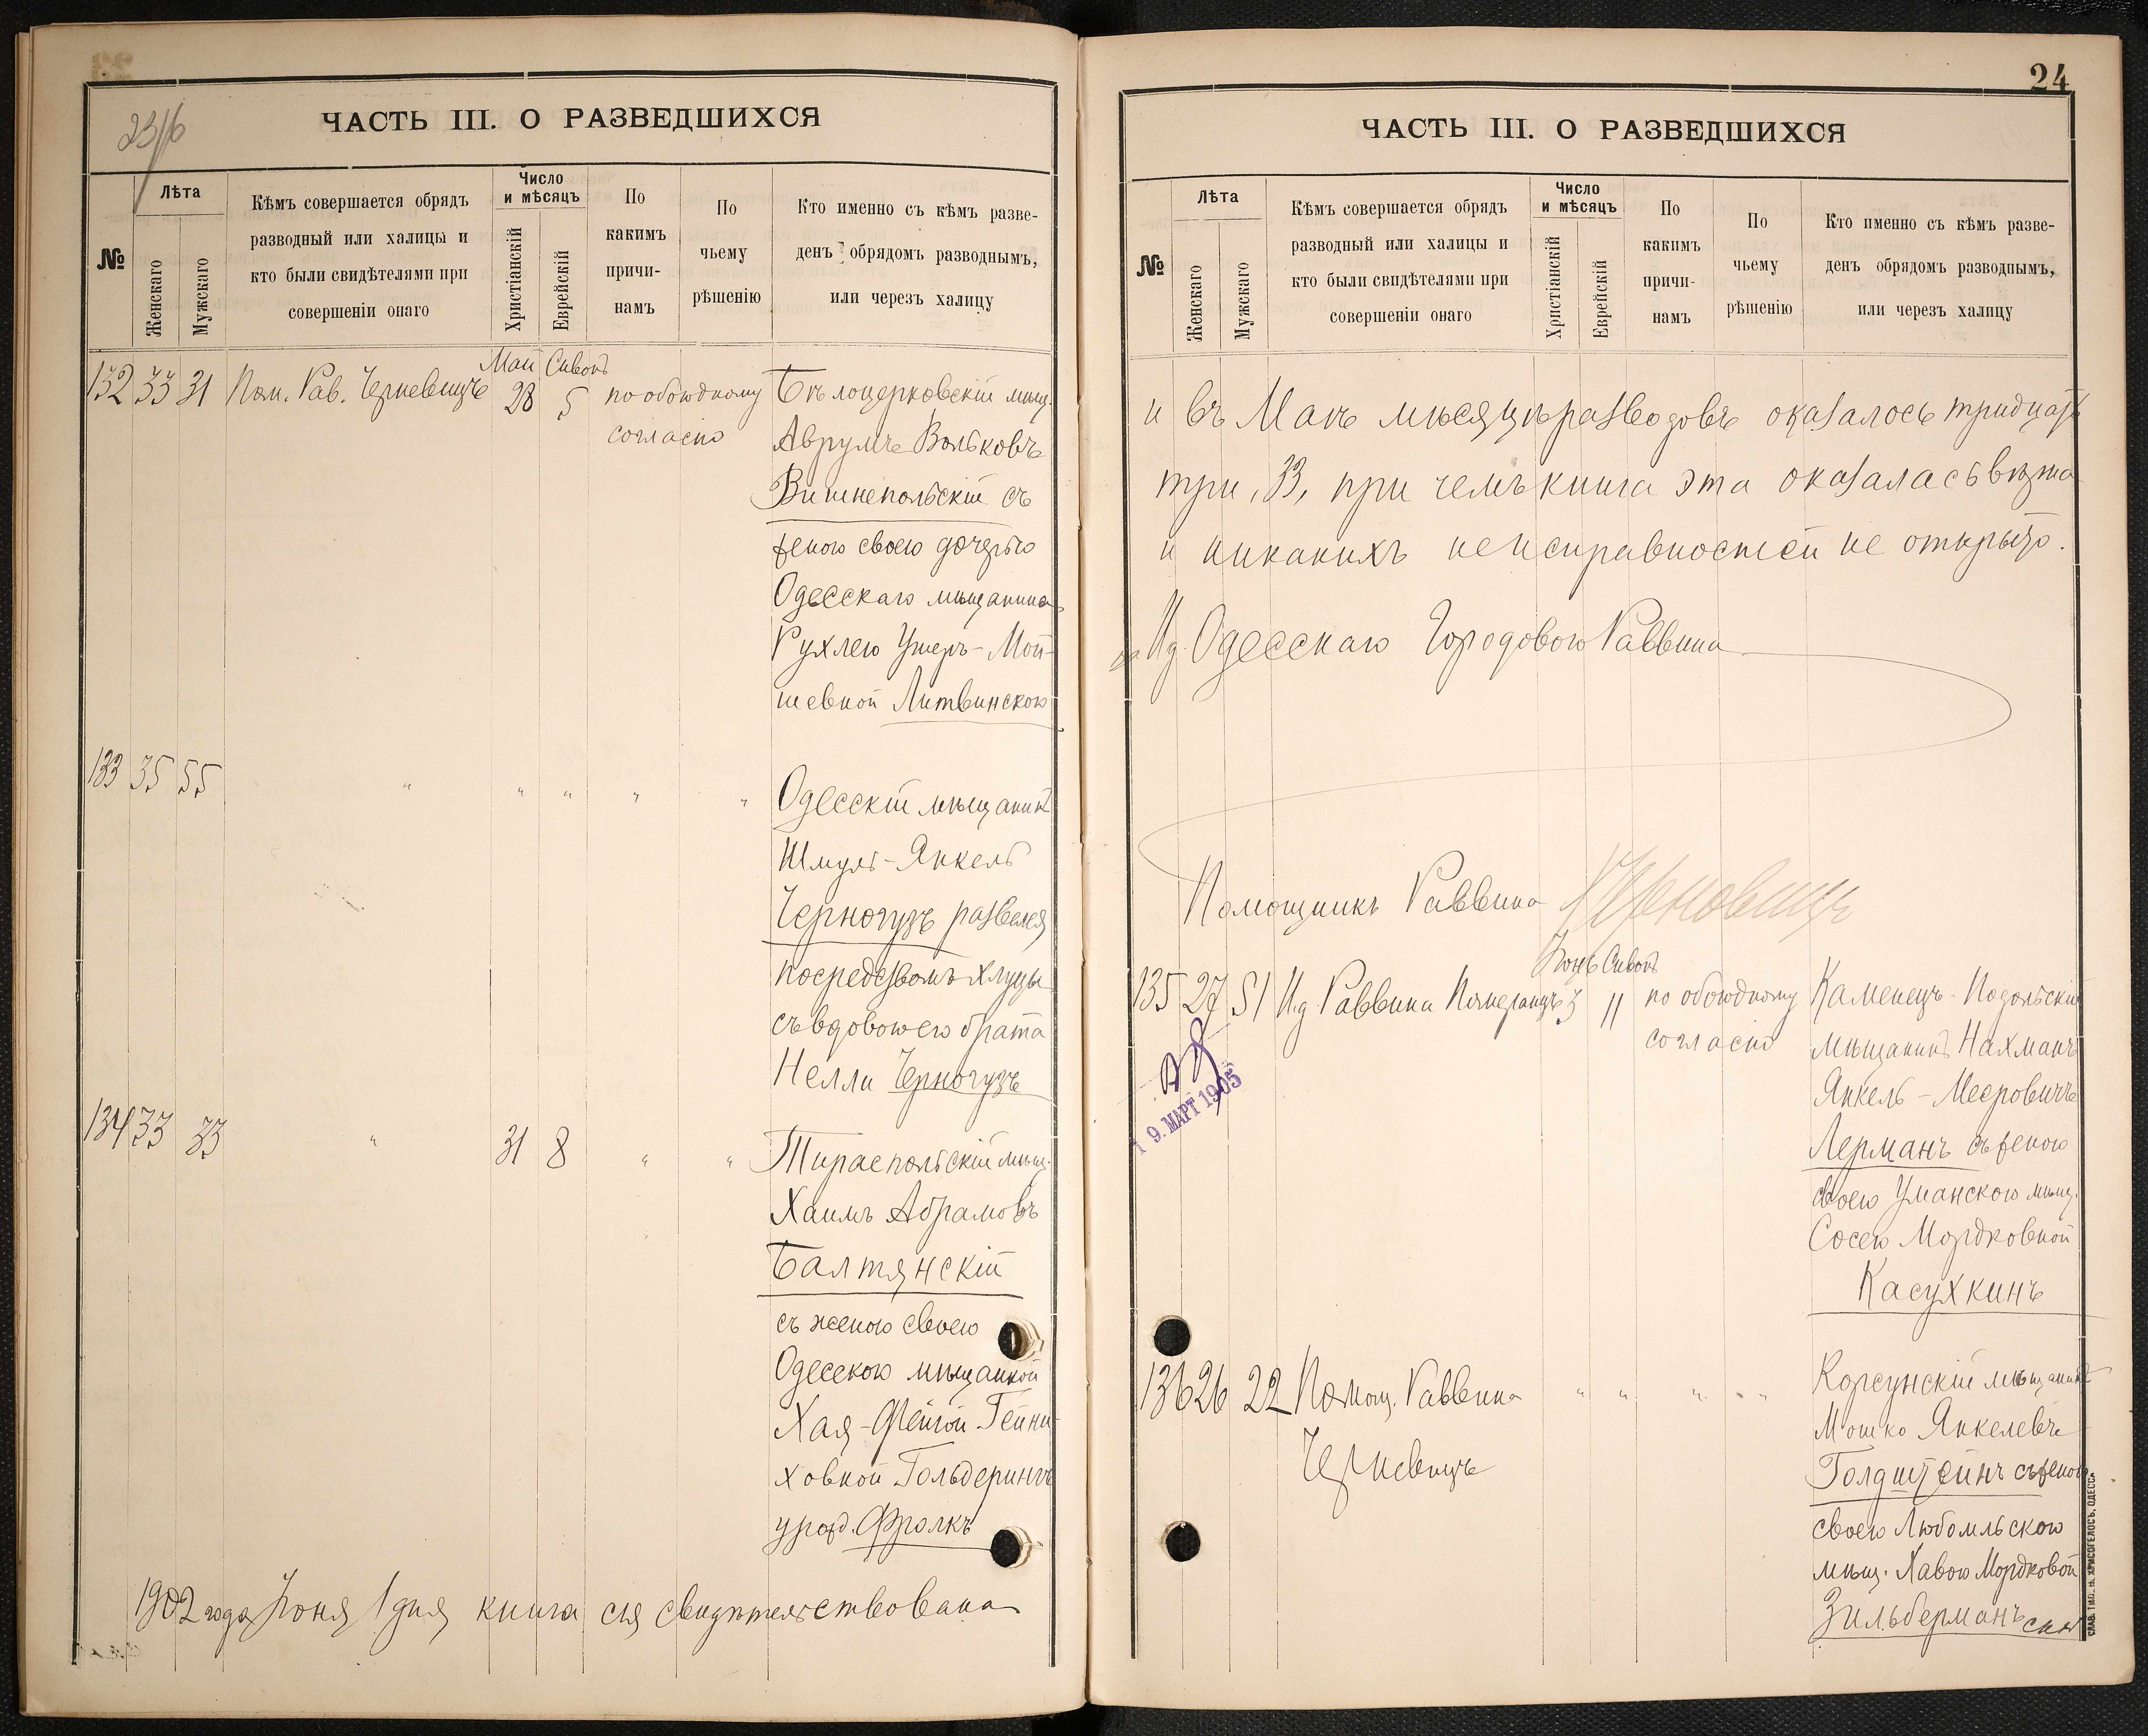 23/16
ЧАСТЬ III. О РАЗВЕДШИХСЯ
№
Лѣта
Женскаго
Мужскаго
Кѣмъ совершается обрядъ
разводный или халицы и
кто были свидѣтелями при
совершеніи онаго
Число
и мѣсяцъ
Христіанскій
Еврейскій
По
какимъ
причи-
намъ
По
чьему
рѣшенію
Кто именно съ кѣмъ разве-
денъ обрядомъ разводнымъ,
или черезъ халицу
Май Сивонъ
132 33 31 Пом. Рав. Черневицъ 28 5 по обоюдному Бѣлоцерковскій мѣщ.
согласію Аврумъ Вольковъ
Вишнепольскій съ
женою своею дочерью
Одесскаго мѣщанина
Рухлею Ушеръ-Мой-
шевной Литвинскою
133 35 55 " " " " " Одесскій мѣщанинъ
Шмуль-Янкель
Черногузъ развелся
посредствомъ хлуцы
съ вдовою его брата
Нелли Черногузъ
134 33 33 " 31 8 " " Тираспольскій мѣщ.
Хаимъ Абрамовъ
Балтянскій
съ женою своею
Одесскою мѣщанкой
Хая-Фейгой Гейни-
ховной Гольдерингъ
урожд. Фролкъ
1902 года Іюня 1 дня книга сія свидѣтельствована
24
ЧАСТЬ III. О РАЗВЕДШИХСЯ
№
Лѣта
Женскаго
Мужскаго
Кѣмъ совершается обрядъ
разводный или халицы и
кто были свидѣтелями при
совершеніи онаго
Число
и мѣсяцъ
Христіанскій
Еврейскій
По
какимъ
причи-
намъ
По
чьему
рѣшенію
Кто именно съ кѣмъ разве-
денъ обрядомъ разводнымъ,
или черезъ халицу
и въ Маѣ мѣсяцѣ разводовъ оказалось тридцать
три, 33, при чемъ книга эта оказалась вѣрна
и никакихъ неисправностей не открыто.
И.д. Одесскаго Городового Раввина
Помощникъ Раввина
Іюнь Сивонъ
135 27 51 И.д. Раввина Померанцъ 3 11 по обоюдному Каменецъ-Подольскій
согласію мѣщанинъ Нахманъ
Янкель-Мееровичъ
Лерманъ съ женою
своею Уманскою мѣщ.
Сосею Мордковной
Касухкинъ
19. МАРТ 1905
136 26 22 Помощ. Раввина " " " " " Корсунскій мѣщанинъ
Черневицъ Мошко Янкелевъ
Голдштейнъ съ женою
своею Любомльскою
мѣщ. Хавою Мордковой
Зильберманъ
СЛАВ. ТИП. Н. ХРИСОГЕЛОСЪ, ОДЕССА